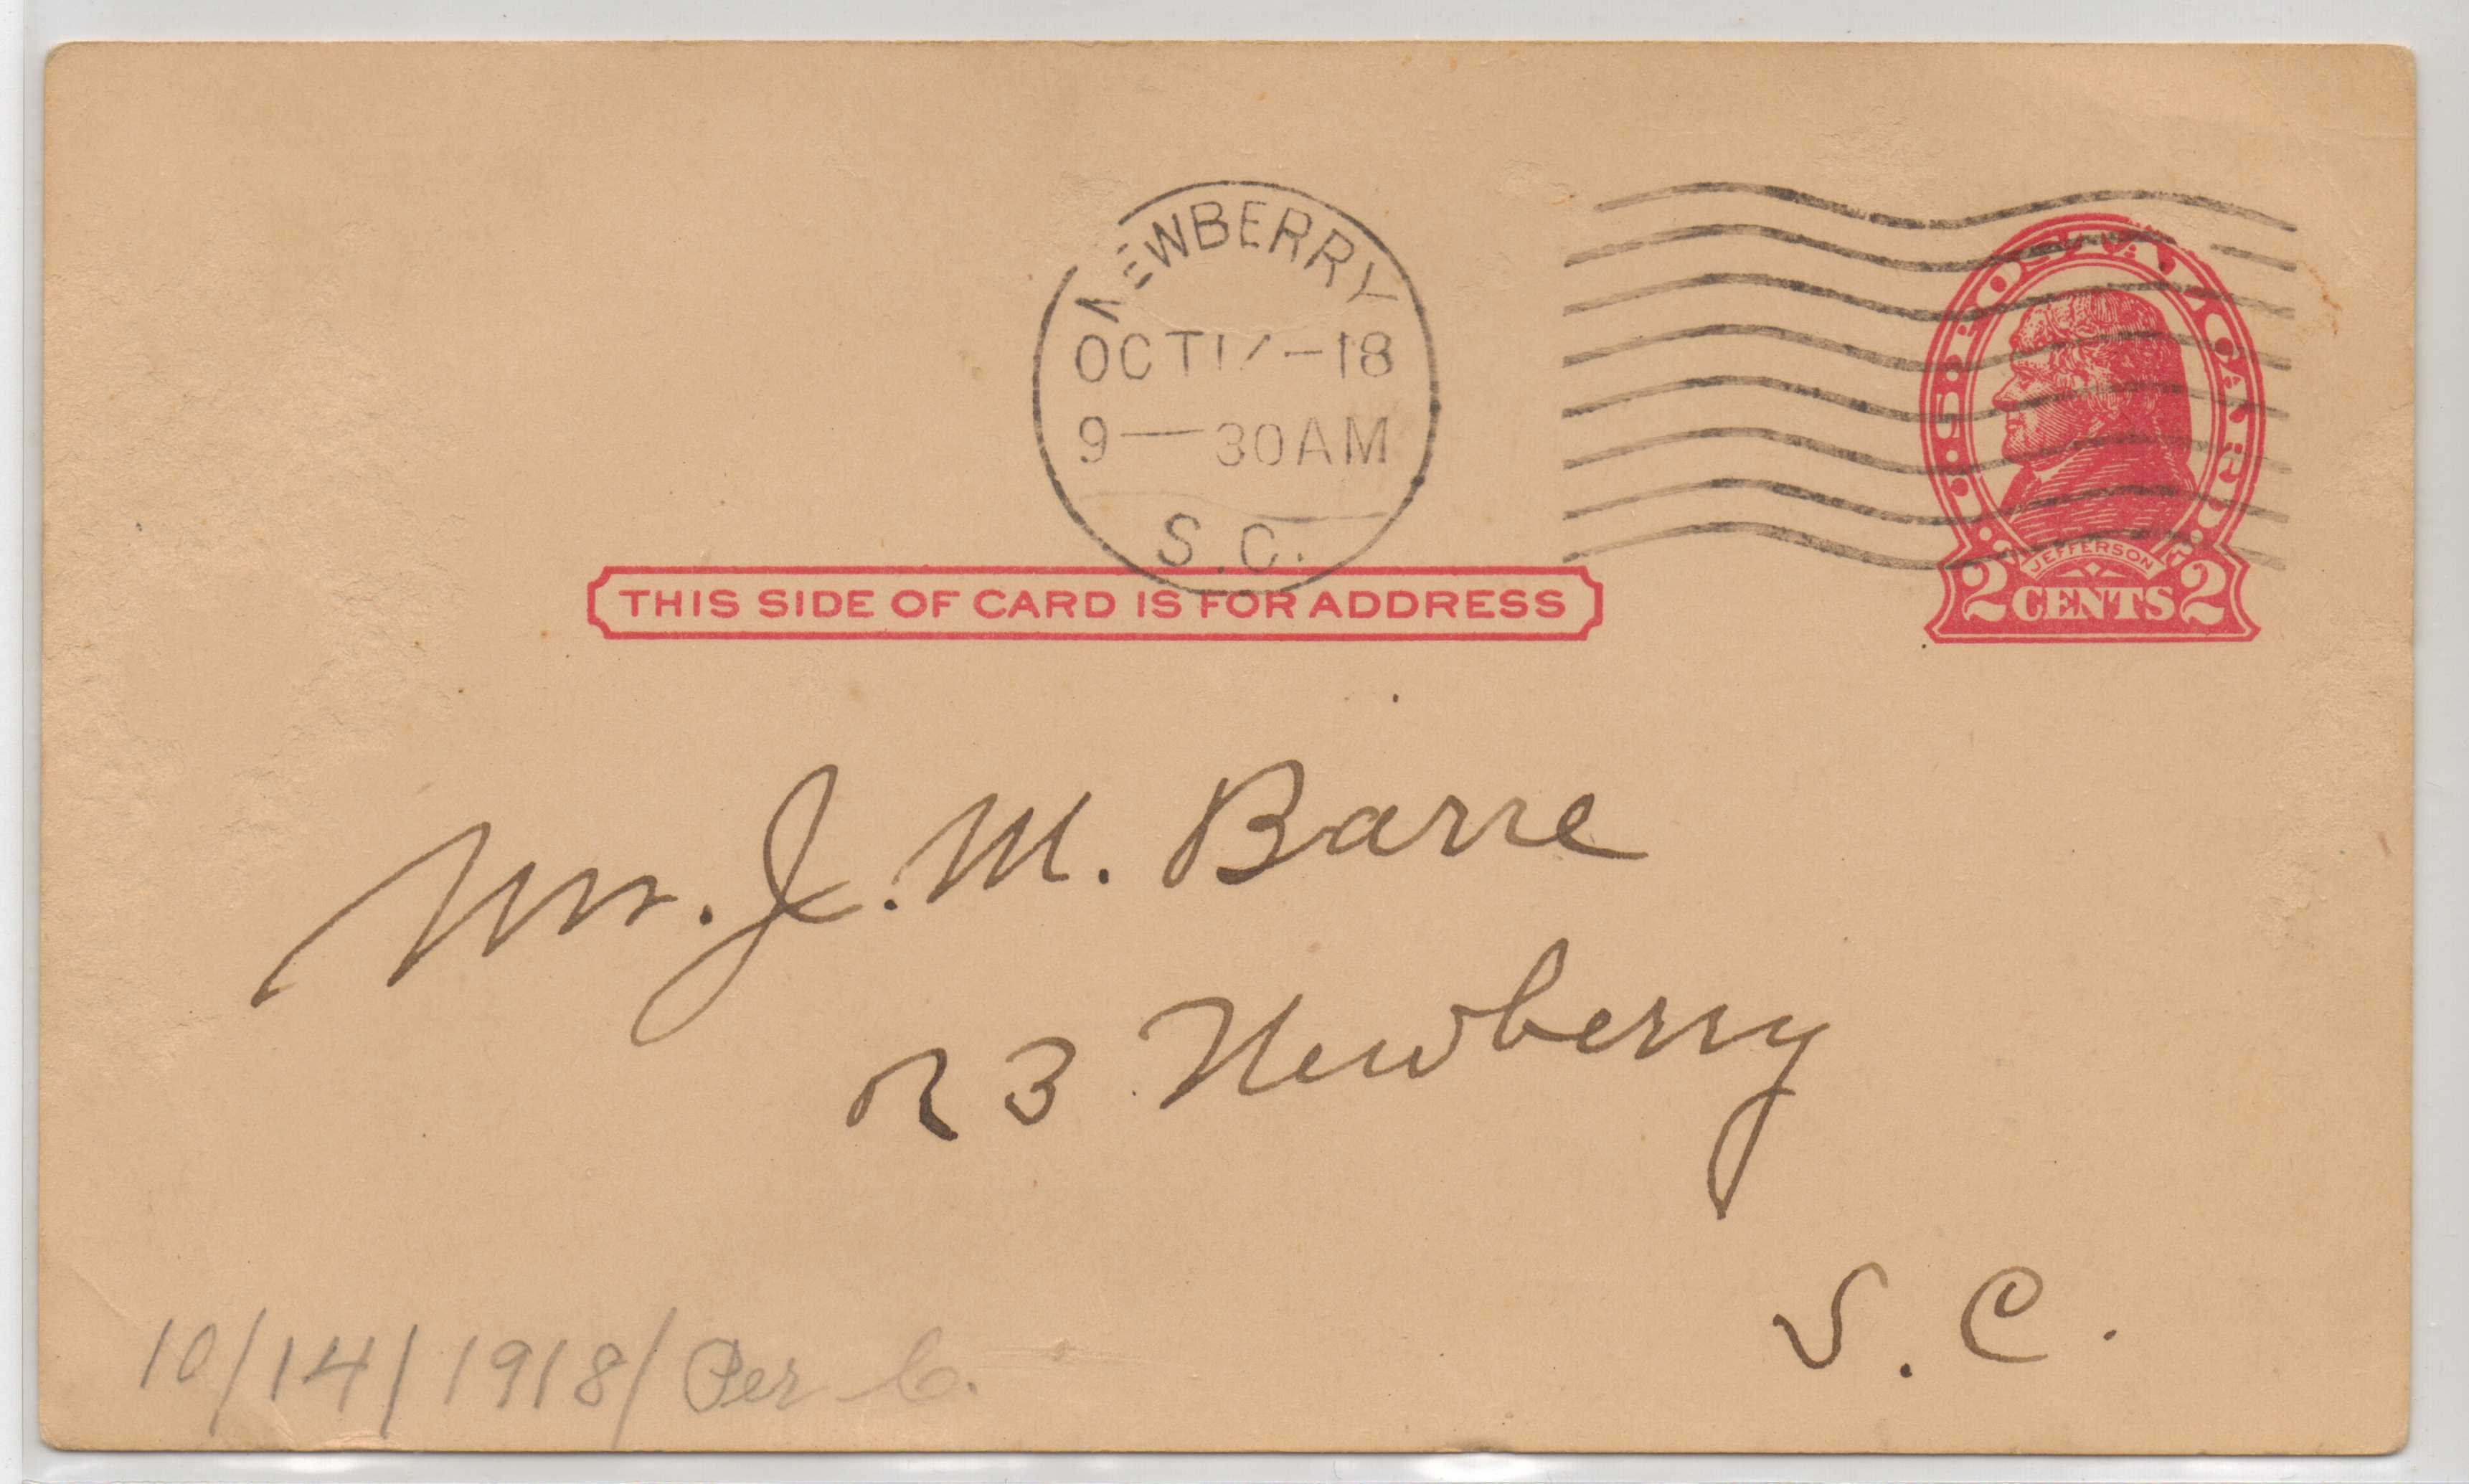 NEWBERRY
OCT 17 -18
9— 30AM
S.C.
U.S. POSTAL CARD
JEFFERSON
2 CENTS 2
THIS SIDE OF CARD IS FOR ADDRESS
Mr. J. M. Barre
R 3 Newberry
S. C.
10/14/1918/ Per